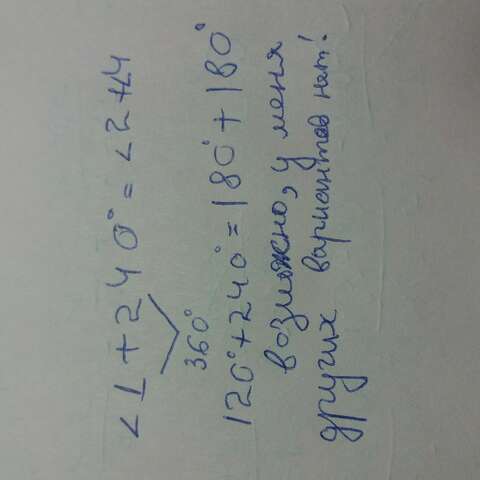 <1 + 240° = <2 + <4
360°
120° + 240° = 180° + 180°
возможно, у меня
других вариантов нат!